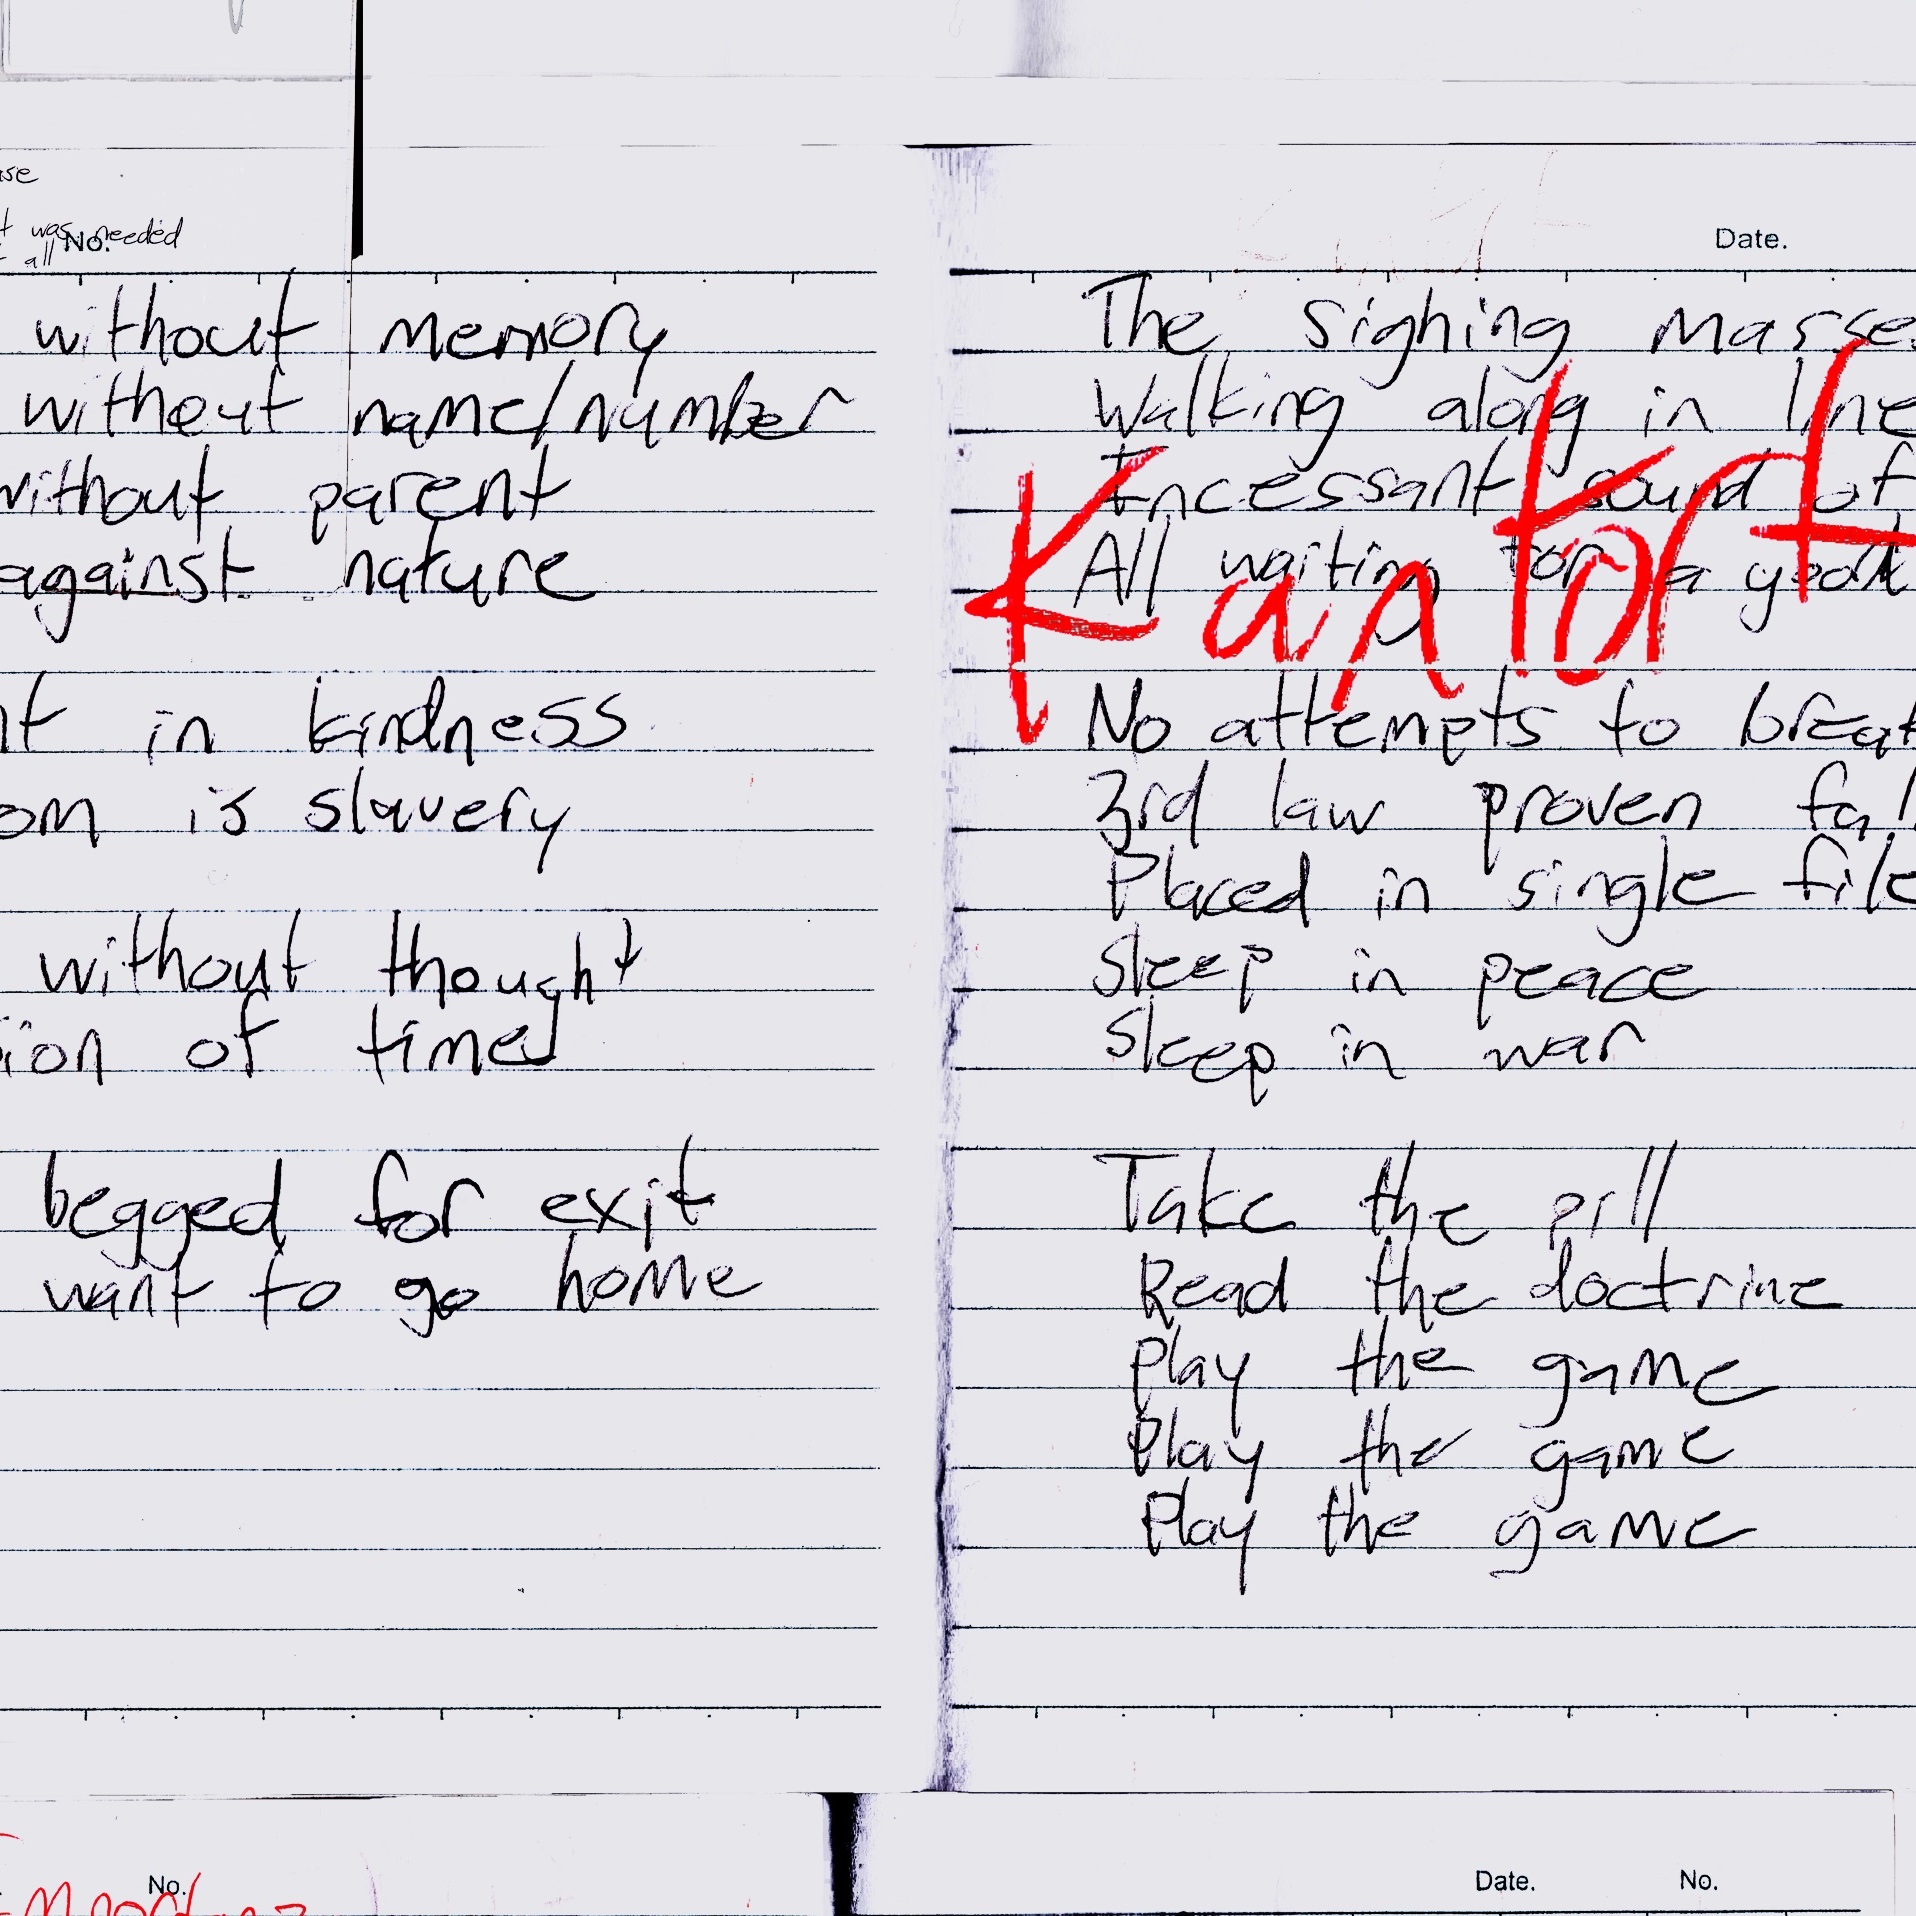 was needed
all
No.
without memory
without name/number
without parent
against nature
in kindness
is slavery
without thought
of time
begged for exit
want to go home
Date.
The sighing masse
Walking along in line
Incessant sound of
All waiting for a good
Kanfort
No attempts to break
3rd law proven fal
Placed in single file
Sleep in peace
Sleep in war
Take the pill
Read the doctrine
Play the game
Play the game
Play the game
No.
Date. No.